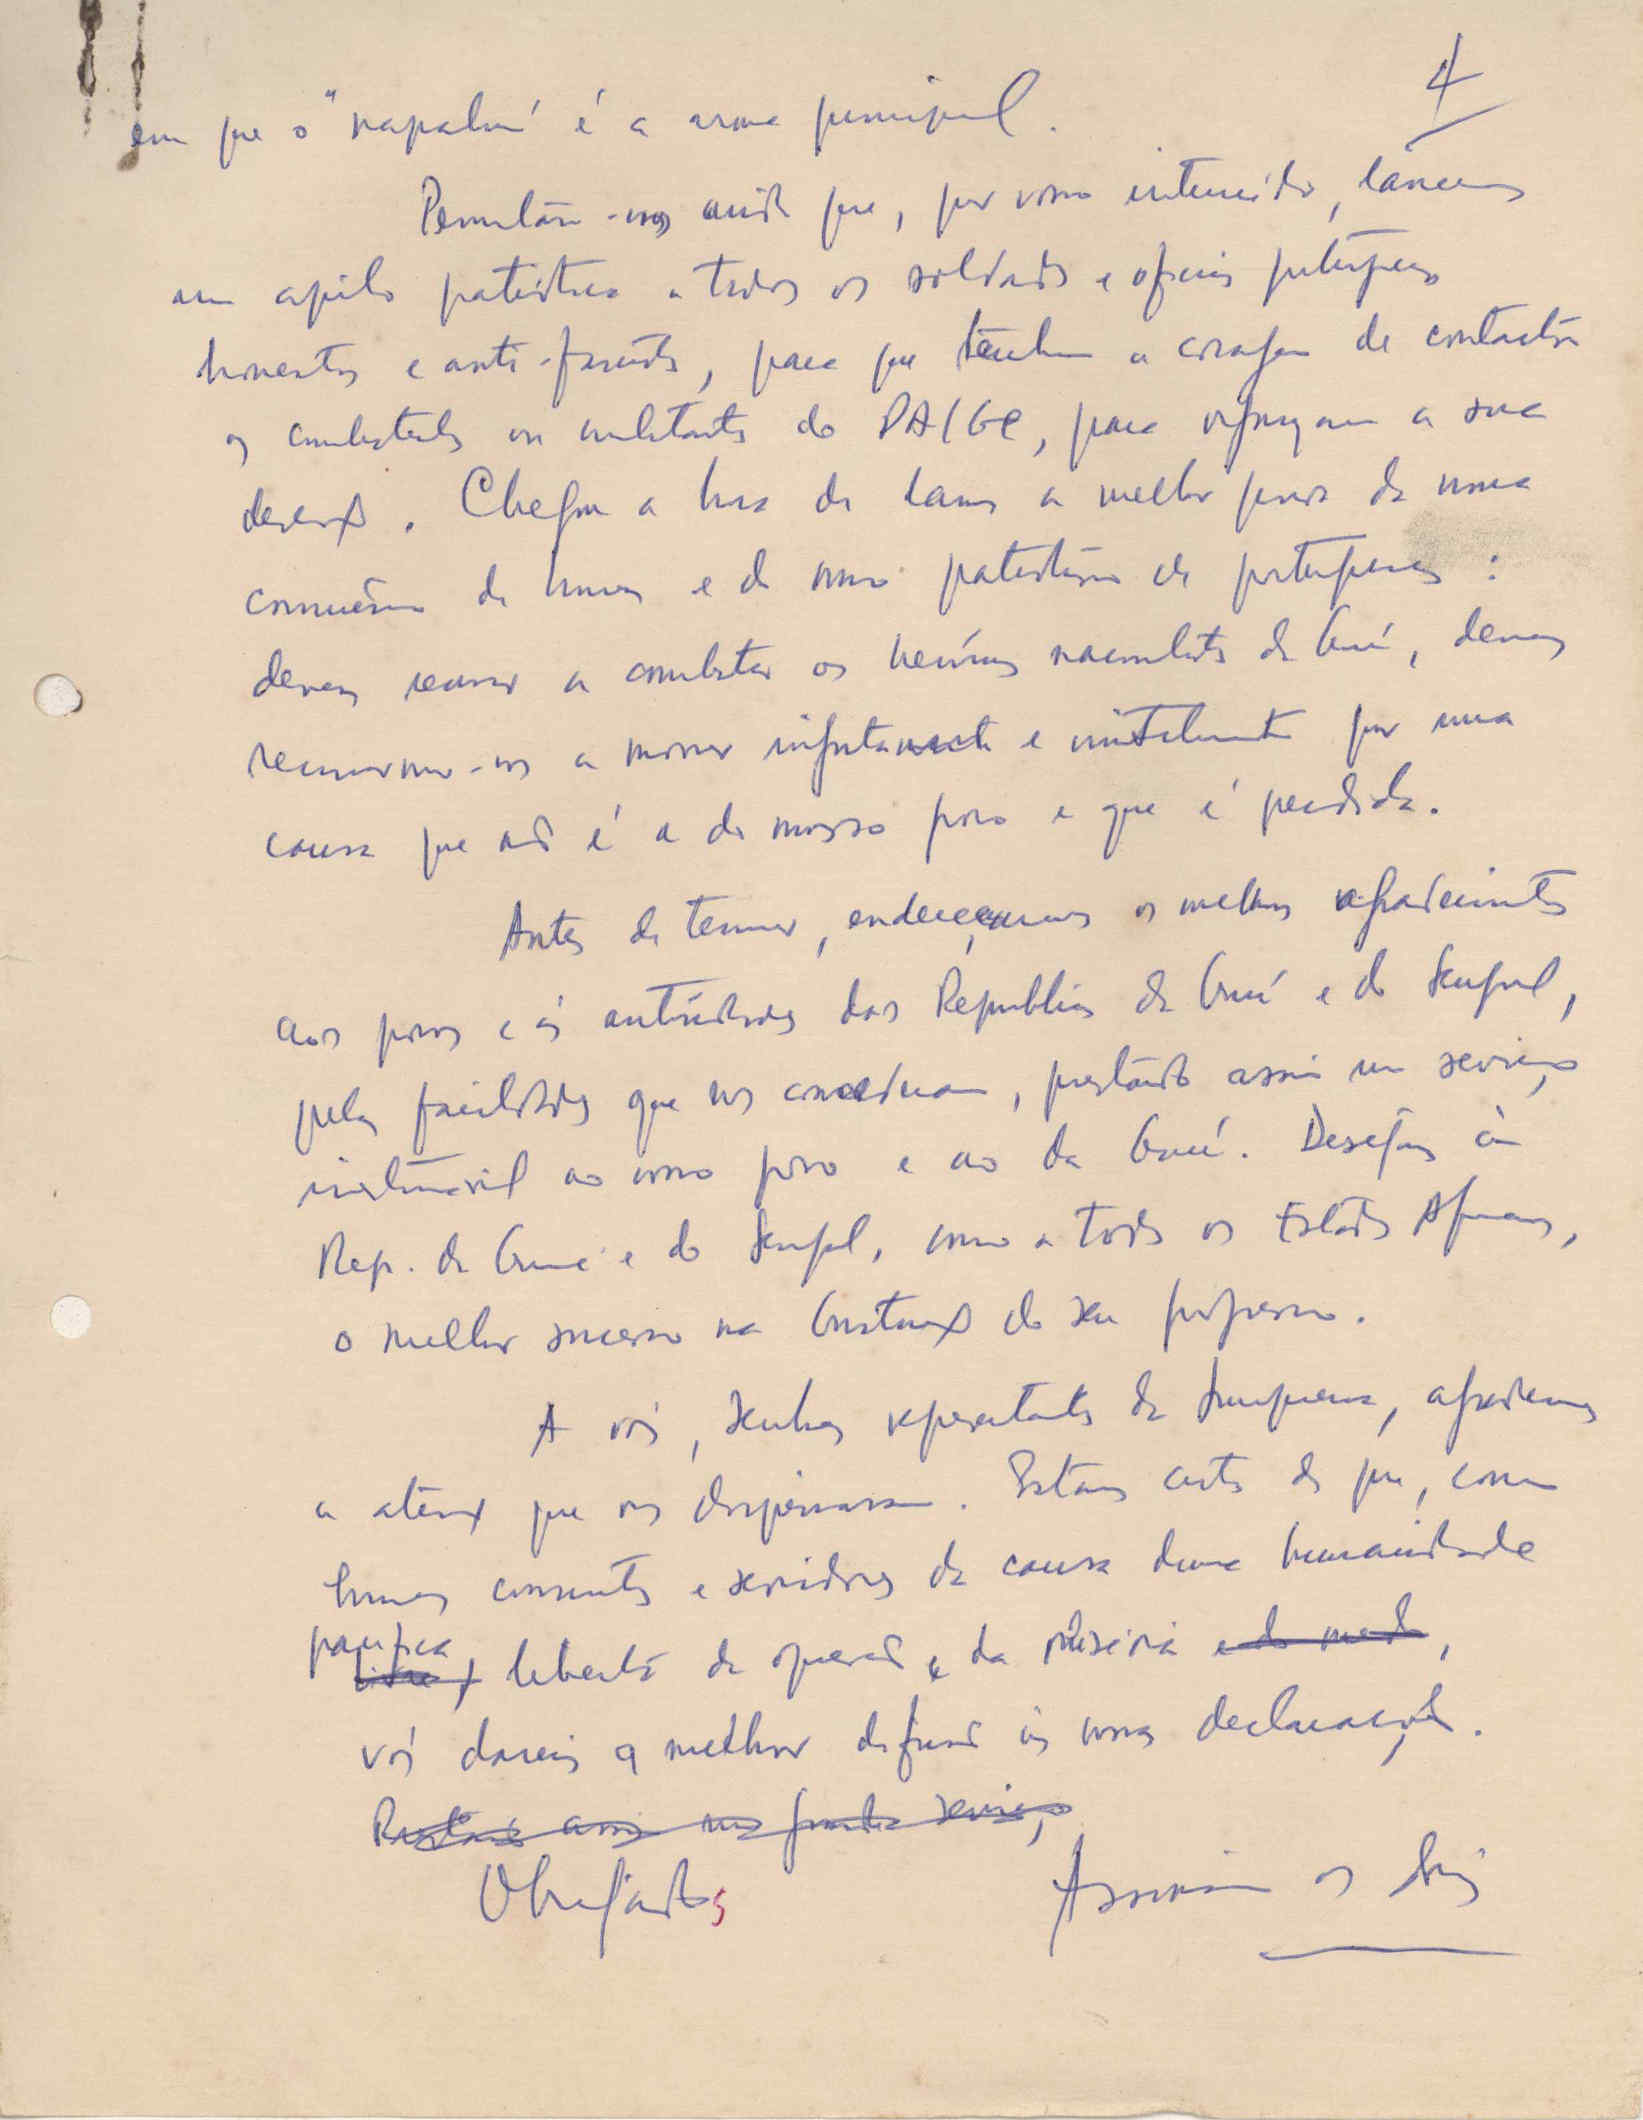 4
em que o "napalm" é a arma principal.
Permitam-nos ainda que, por vosso intermédio, lancemos
um apelo patriótico a todos os soldados e oficiais portugueses
honestos e anti-fascistas, para que tenham a coragem de contactar
os combatentes ou militantes do PAIGC, para reforçarem a sua
deserção. Chegou a hora de darmos a melhor prova da nossa
consciência de homens e do nosso patriotismo de portugueses:
devemos recusar a combater os heróicos nacionalistas da Guiné, devemos
recusarmo-nos a morrer inglòriamente e inùtilmente por uma
causa que não é a do nosso povo e que é perdida.
Antes de terminar, endereçamos os melhores agradecimentos
aos povos e às autoridades das Repúblicas da Guiné e do Senegal,
pelas facilidades que nos concederam, prestando assim um serviço
inestimável ao nosso povo e ao da Guiné. Desejamos às
Rep. da Guiné e do Senegal, como a todos os Estados Africanos,
o melhor sucesso na Construção do seu progresso.
A vós, senhores representantes da Imprensa, agradecemos
a atenção que nos dispensaram. Estamos certos de que, como
homens conscientes e servidores da causa duma humanidade
pacífica
liberta da opressão e da miséria e do medo,
vós dareis a melhor difusão às nossas declarações.
Prestando assim um grande serviço
Obrigados
Assinam os três